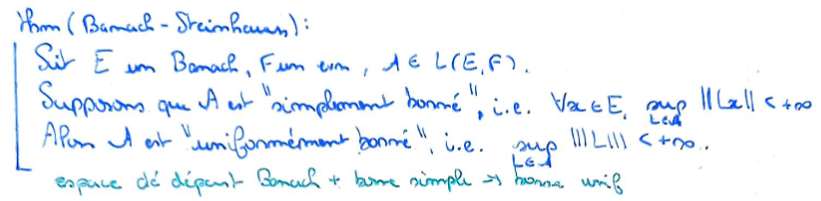 Thm (Banach-Steinhaus):
Soit E un Banach, F un evn, A ∈ L(E,F).
Supposons que A est "simplement borné", i.e. ∀x∈E, sup_{L∈A} ||Lx|| < +∞
Alors A est "uniformément borné", i.e. sup_{L∈A} |||L||| < +∞.
espace de départ Banach + borne simple → borne unif